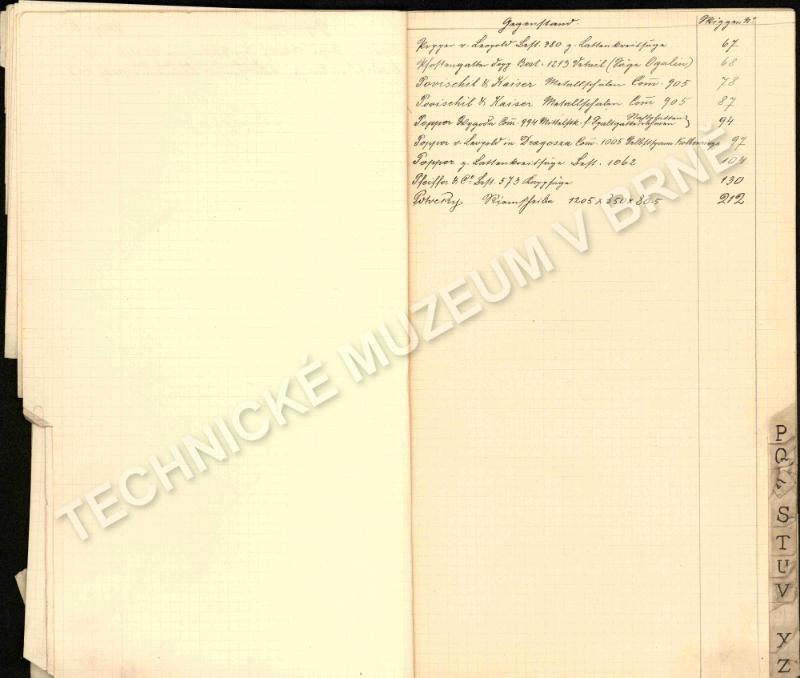 Gegenstand. Skizzen No.
Popper v. Leopold Best. 380 z. Lattenkreissäge 67
Pfostengatter Topp Best. 1213 Detail (Säge Ogalen) 68
Povischil & Kaiser Metallschalen Com. 905 78
Povischil & Kaiser Metallschalen Com 905 87
Popper Wygoda Com. 994 Mittelstk. f. Spaltgatterrahmen 94
Popper v. Leopold in Dragosza Com. 1005 97
Popper z. Lattenkreissäge Best. 1062 104
Pfeiffer & Co. Best. 573 Kappsäge 130
Riemscheibe 1205 x 250 x 80.5 212
P
Q
S
T
U
V
X
Z
TECHNICKÉ MUZEUM V BRNĚ